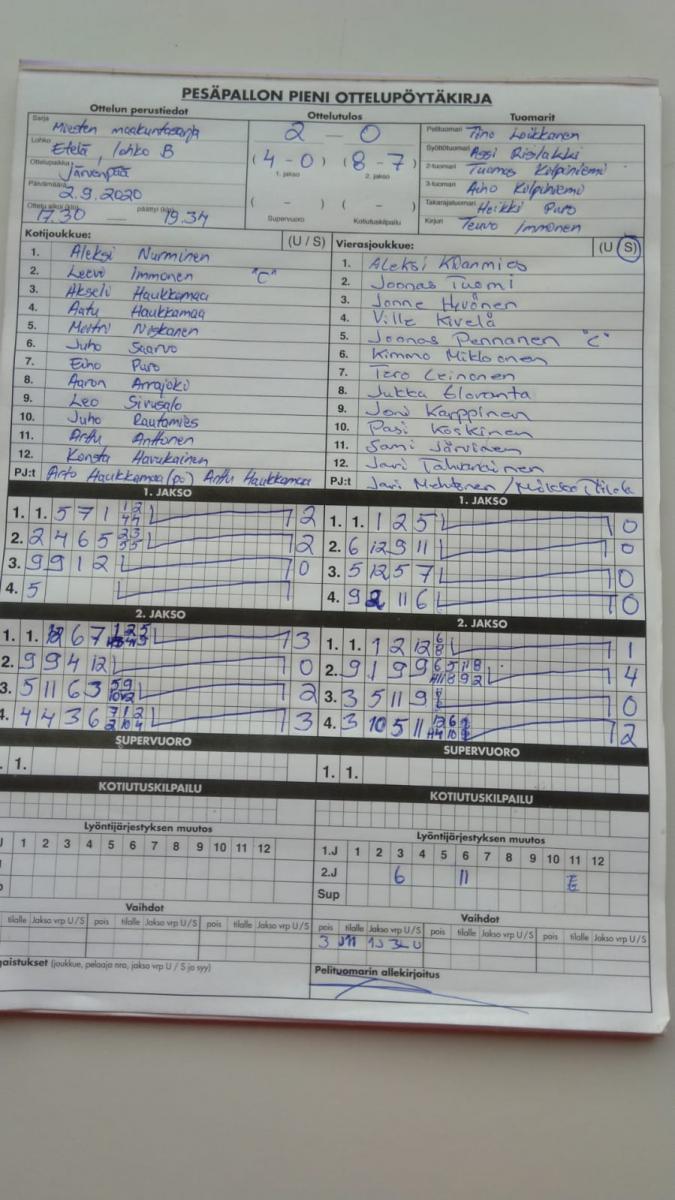 PESÄPALLON PIENI OTTELUPÖYTÄKIRJA
Ottelun perustiedot
Ottelutulos
Tuomarit
Sarja Miesten maakuntasarja
Lohko Etelä, lohko B
Ottelupaikka Järvenpää
Päivämäärä 2.9.2020
Ottelu alkoi (klo) 17.30 päättyi (klo) 19.34
2 — 0
(4 - 0) (8 - 7)
1. jakso 2. jakso
( - ) ( - )
Supervuoro Kotiutuskilpailu
Pelituomari Timo Leikkanen
Syöttötuomari Assi Rislakki
2-tuomari Tuomas Kilpiniemi
3-tuomari Aiho Kilpiniemi
Takarajatuomari Heikki Puro
Kirjuri Teuvo Immonen
Kotijoukkue: (U / S)
1. Aleksi Nurminen
2. Leevi Immonen "C"
3. Akseli Haukkamaa
4. Aatu Haukkamaa
5. Niskanen
6. Juho Saarvo
7. Eino Puro
8. Aaron Arrajoki
9. Leo Sivusalo
10. Juho Rautamies
11. Arttu Anttonen
12. Konsta Havukainen
PJ:t Arto Haukkamaa (po) Arttu Haukkamaa
Vierasjoukkue: (U / S)
1. Aleksi
2. Joonas Tuomi
3. Jonne Hyvönen
4. Ville Kivelä
5. Joonas Pennanen "C"
6. Kimmo Mikkonen
7. Tero Leinonen
8. Jukka Eloranta
9. Joni Karppinen
10. Pasi Koskinen
11. Sami Järvinen
12. Jari Tahvanainen
PJ:t Jari
1. JAKSO
1. 1. 5 7 1 2
2. 2 4 6 5 2
3. 9 9 1 2 0
4. 5
1. JAKSO
1. 1. 1 2 5 0
2. 6 12 9 11 0
3. 5 12 5 7 0
4. 9 2 11 6 0
2. JAKSO
1. 1. 6 7 3
2. 9 9 4 12 0
3. 5 11 6 3 2
4. 4 4 3 6 3
2. JAKSO
1. 1. 1 2 12 1
2. 9 1 9 9 4
3. 3 5 11 9 0
4. 3 10 5 11 2
SUPERVUORO
1.
SUPERVUORO
1. 1.
KOTIUTUSKILPAILU
KOTIUTUSKILPAILU
Lyöntijärjestyksen muutos
1 2 3 4 5 6 7 8 9 10 11 12
Lyöntijärjestyksen muutos
1.J 1 2 3 4 5 6 7 8 9 10 11 12
2.J 6 11
Sup
Vaihdot
tilalle Jakso vrp U/S pois tilalle Jakso vrp U/S pois tilalle Jakso vrp U/S
Vaihdot
pois tilalle Jakso vrp U/S pois tilalle Jakso vrp U/S pois tilalle Jakso vrp U/S
3
gaistukset (joukkue, pelaaja nro, jakso vrp U / S ja syy)
Pelituomarin allekirjoitus